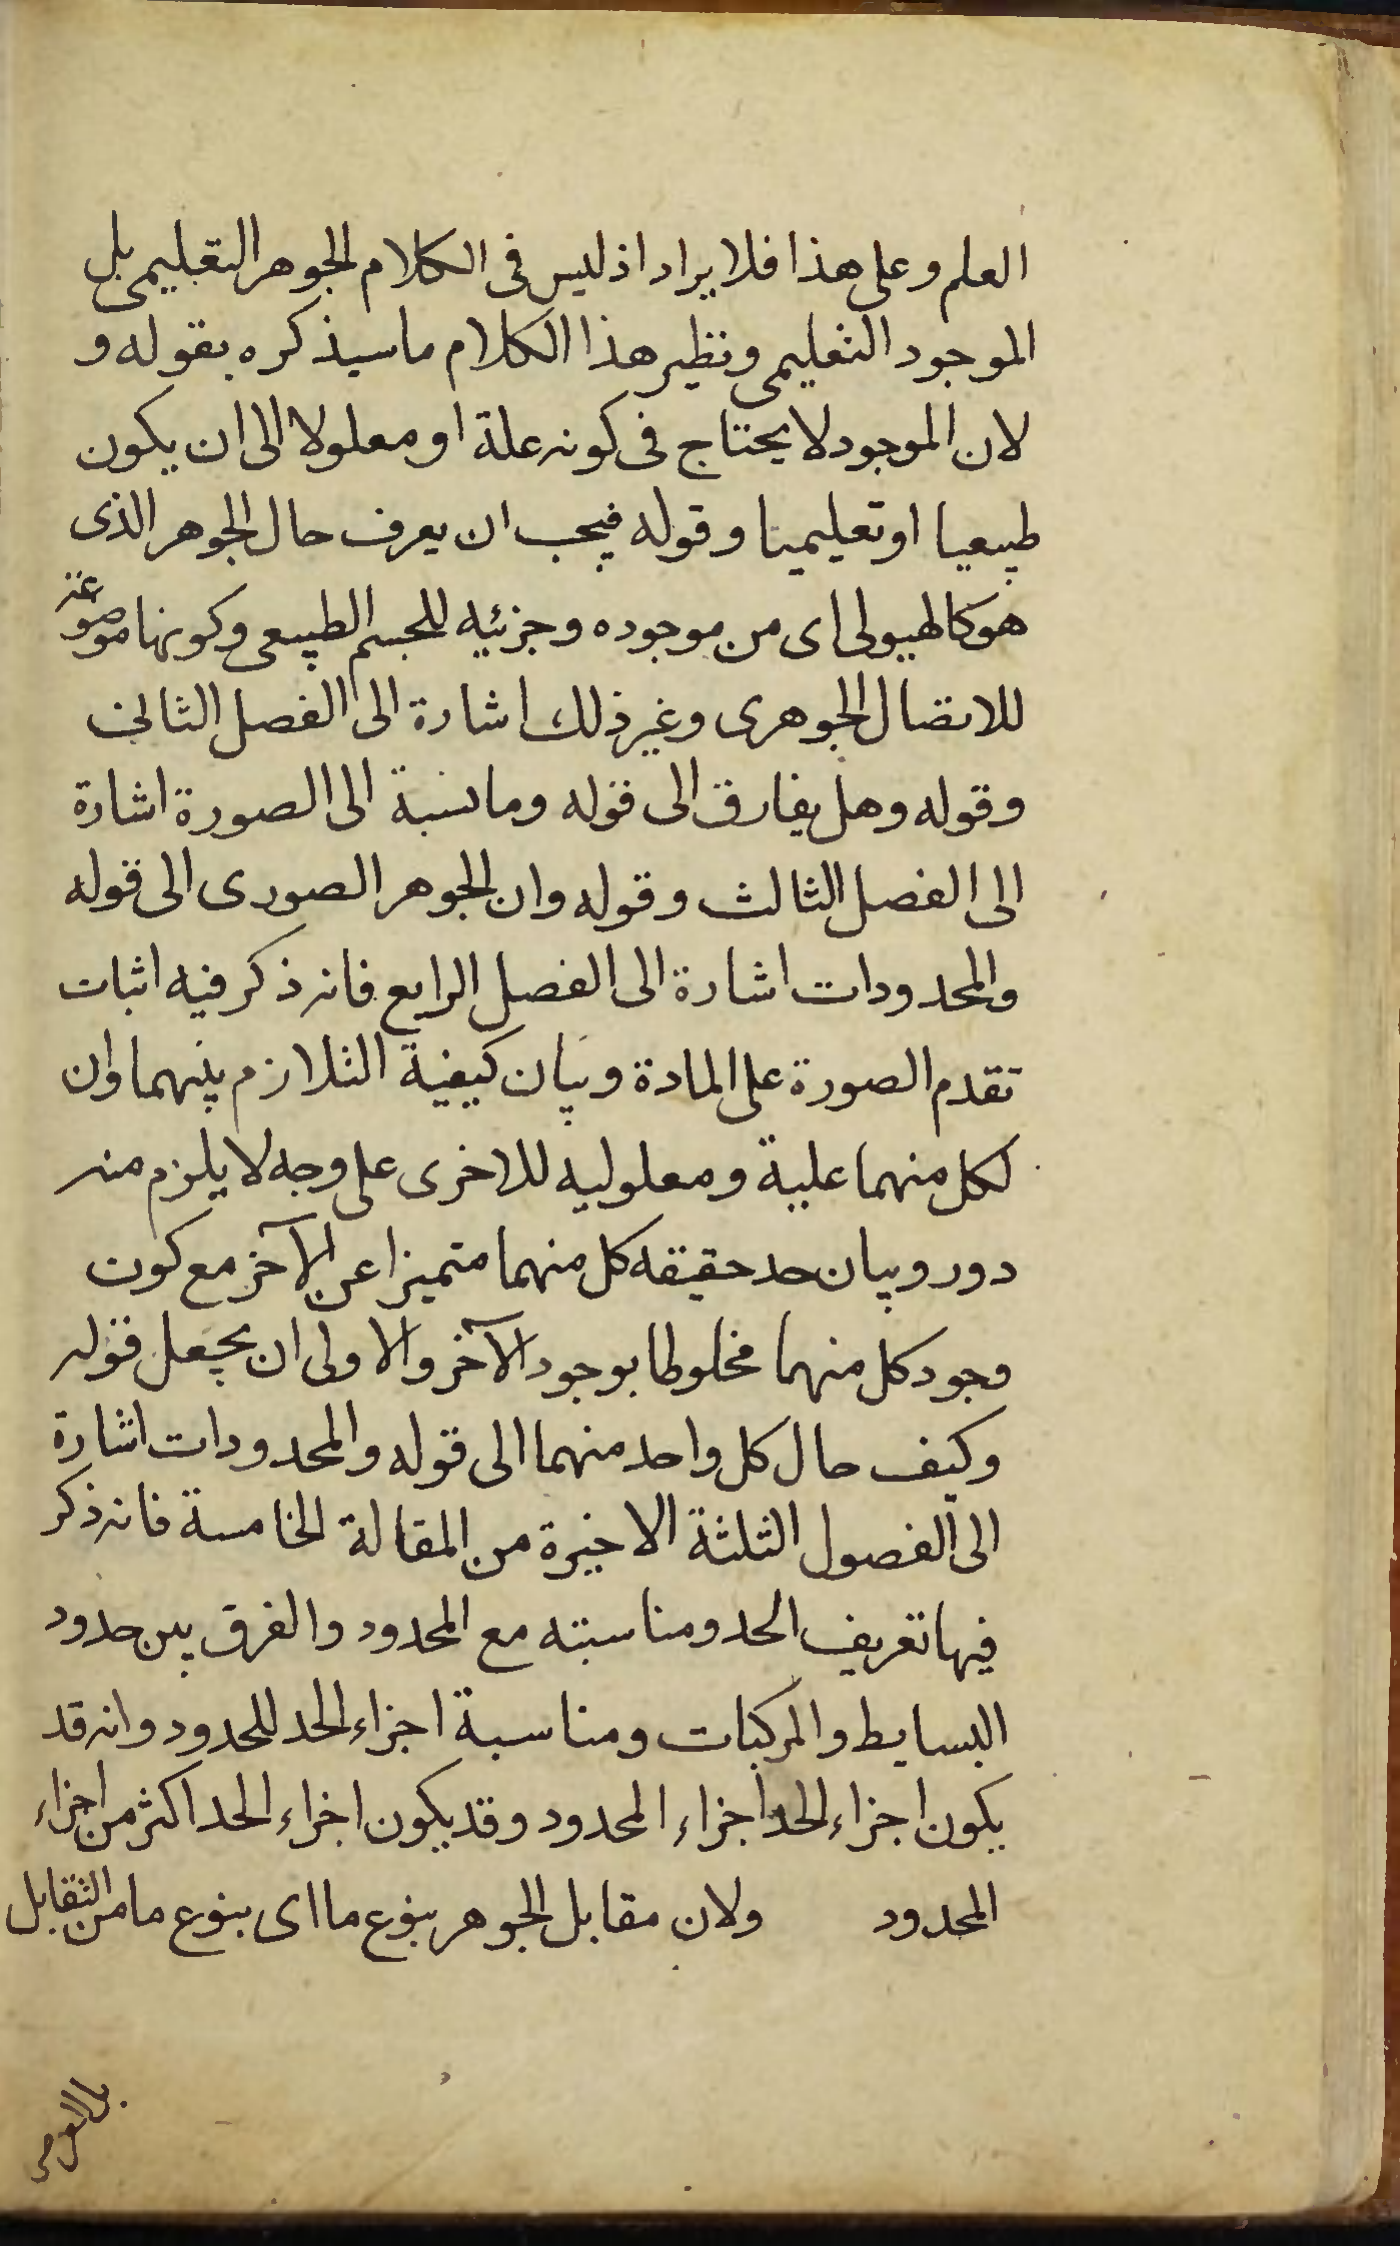 العلم وعلى هذا فلا يراد اذ ليس فى الكلام الجوهر التعليمى بل
الموجود التعليمى ونظير هذا الكلام ما سيذكره بقوله و
لان الموجود لا يحتاج فى كونه علة او معلولا الى ان يكون
طبيعيا او تعليميا وقوله فيجب ان يعرف حال الجوهر الذى
هو كالهيولى اى من موجوده وجزئيه للجسم الطبيعى وكونها موضوعة
للاتصال الجوهرى وغير ذلك اشارة الى الفصل الثانى
وقوله وهل يفارق الى قوله وما نسبة الى الصورة اشارة
الى الفصل الثالث وقوله وان الجوهر الصورى الى قوله
والمحدودات اشارة الى الفصل الرابع فانه ذكر فيه اثبات
تقدم الصورة على المادة وبيان كيفية التلازم بينهما وان
لكل منهما علية ومعلولية للاخرى على وجه لا يلزم منه
دور وبيان حد حقيقه كل منهما متميزا عن الآخر مع كون
وجود كل منهما مخلوطا بوجود الآخر والاولى ان يجعل قوله
وكيف حال كل واحد منهما الى قوله والمحدودات اشارة
الى الفصول الثلثة الاخيرة من المقالة الخامسة فانه ذكر
فيها تعريف الحد ومناسبته مع المحدود والفرق بين حدود
البسايط والمركبات ومناسبة اجزاء الحد للمحدود وانه قد
يكون اجزاء الحد اجزاء المحدود وقد يكون اجزاء الحد اكثر من اجزاء
المحدود ولان مقابل الجوهر بنوع ما اى بنوع ما من التقابل